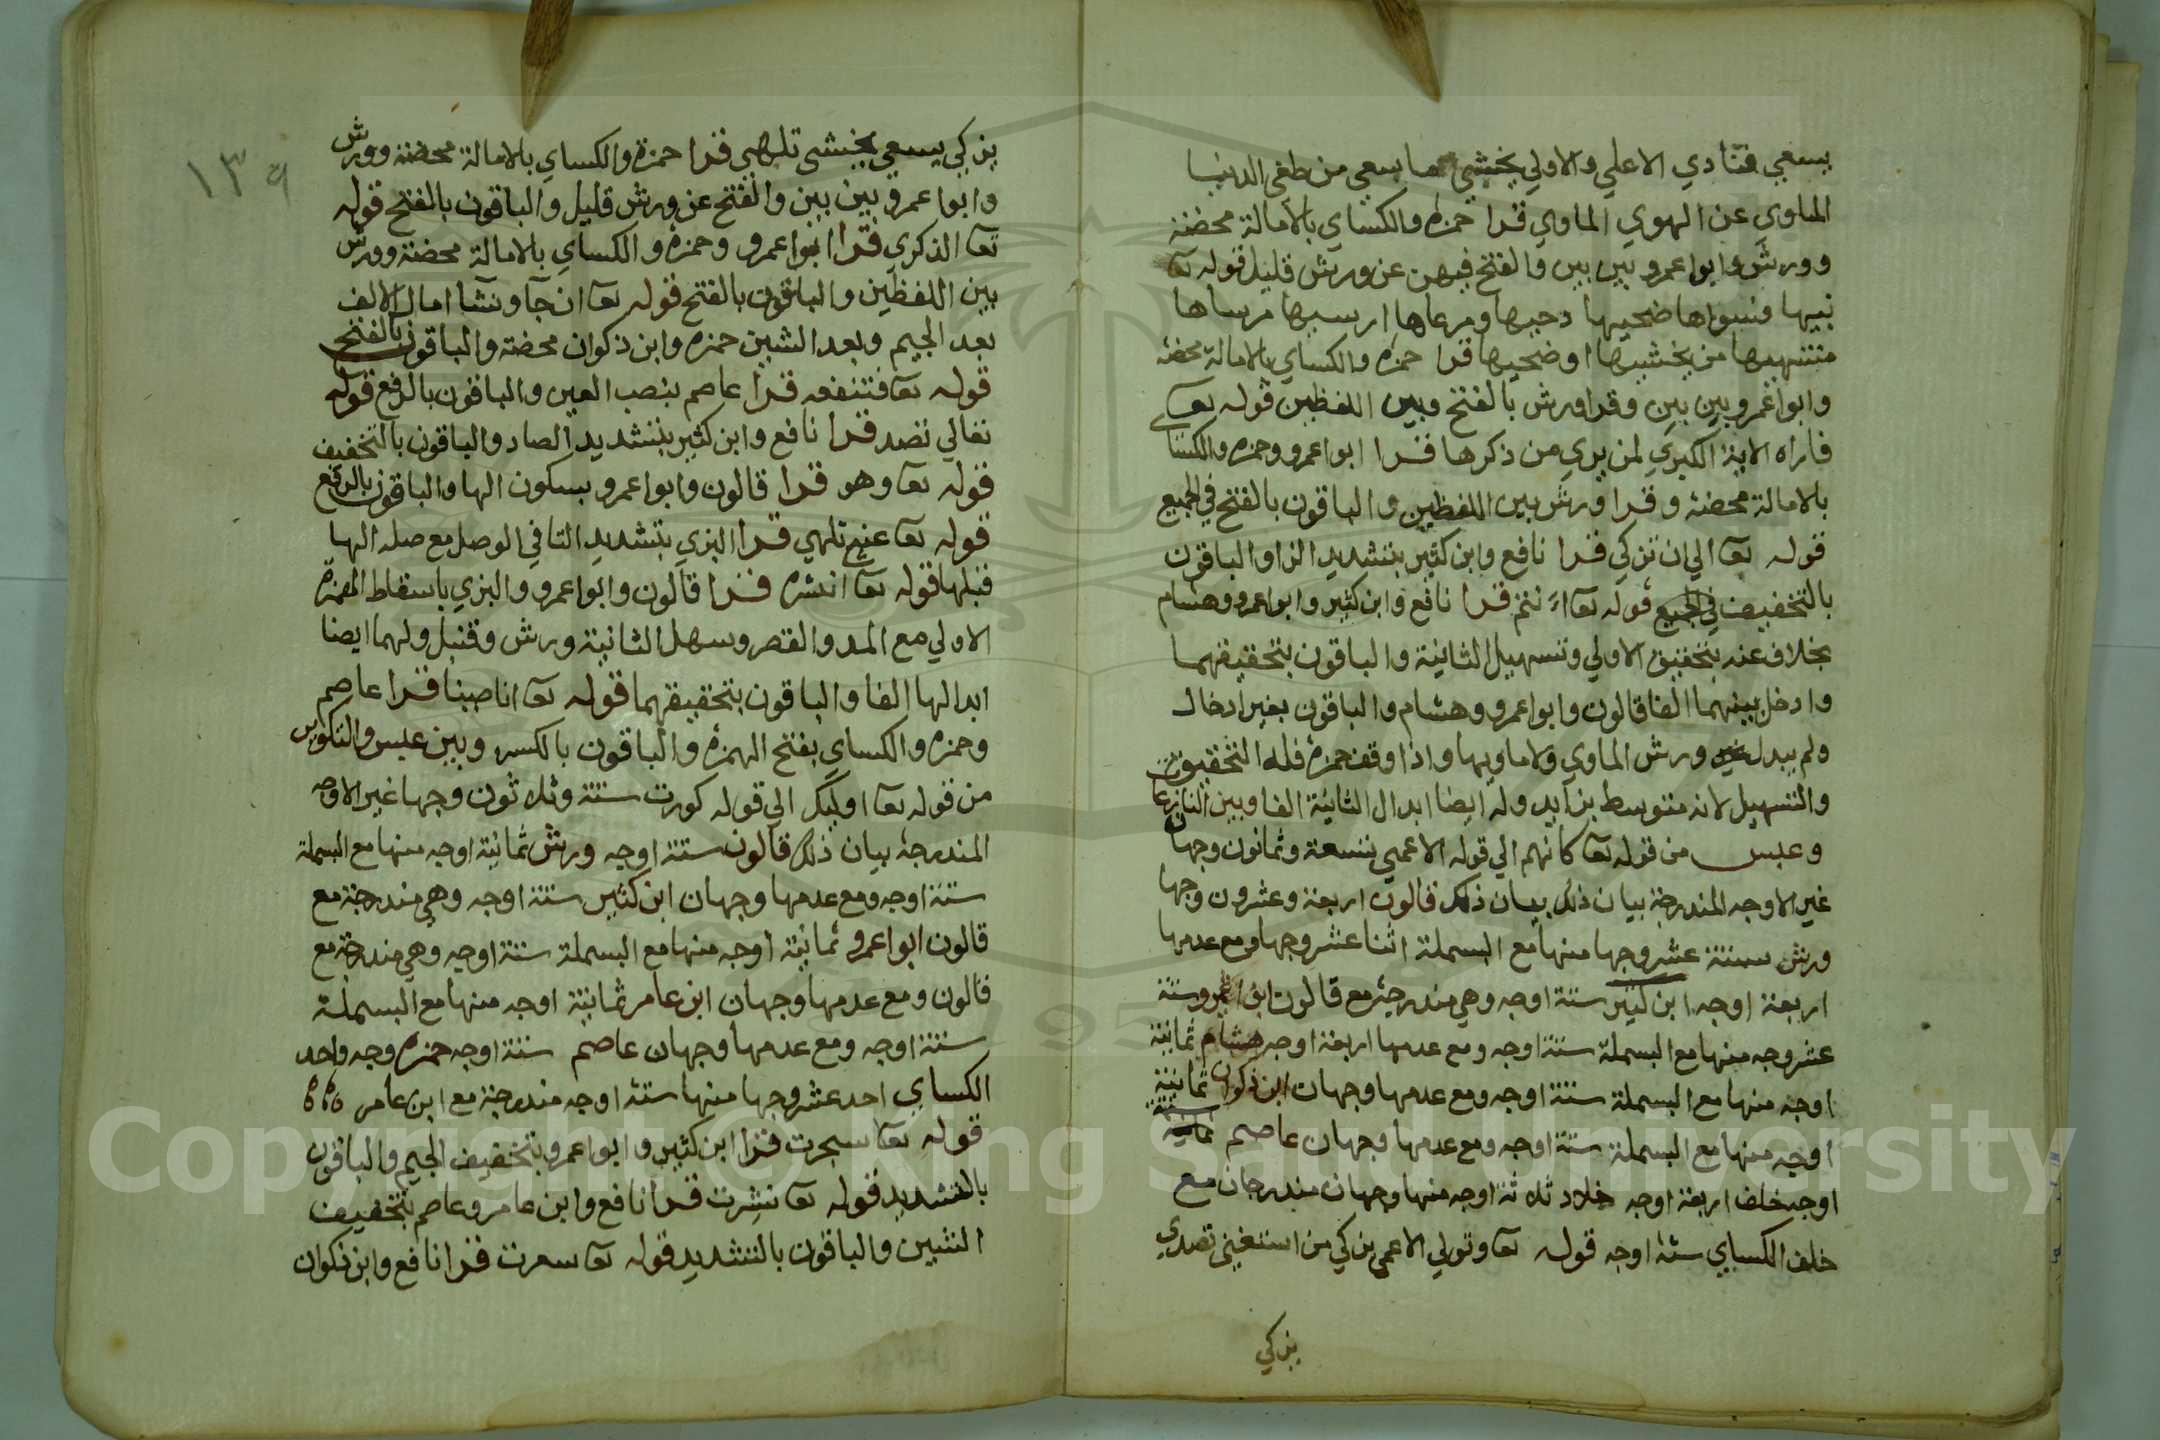 يسعي فنادي الاعلي والاولي يخشي يسعي من طغي الدنيا
الماوي عن الهوي الماوي قرا حمزه والكساي بالامالة محضة
وورش وابوا عمرو بين بين والفتح فيهن عن ورش قليل قوله تعا
بنيها فسواها ضحيها دحيها ومرعاها ارسيها مرساها
منتهيها من يخشيها او ضحيها قرا حمزه والكساي بالامالة محضة
وابوا عمرو بين بين وقرا ورش بالفتح وبين اللفظين قوله تعالي
فاراه الاية الكبري لمن يري من ذكرها قرا ابوا عمرو وحمزه والكساي
بالامالة محضة وقرا ورش بين اللفظين والباقون بالفتح في الجميع
قوله تعا الي ان تزكي قرا نافع وابن كثير بتشديد الزا والباقون
بالتخفيف في الجميع قوله تعا اءنتم قرا نافع وابن كثير وابوا عمرو وهشام
بخلاف عنه بتحقيق الاولي وتسهيل الثانية والباقون بتحقيقهما
وادخل بينهما الفا قالون وابوا عمرو وهشام والباقون بغير ادخال
ولم يبدل ورش الماوي ولا ماويها واذا وقف حمزه فله التحقيق
والتسهيل لانه متوسط بزايد وله ايضا ابدال الثانية الفا وبين النازعات
وعبس من قوله تعا كانهم الي قوله الاعمي تسعة وثمانون وجها
غير الاوجه المندرجة بيان ذلك بيان ذلك قالون اربعة وعشرون وجها
ورش ستة عشر وجها منها مع البسملة اثنا عشر وجها ومع عدمها
اربعة اوجه ابن كثير ستة اوجه وهي مندرجة مع قالون ابوا عمرو ستة
عشر وجه منها مع البسملة ستة اوجه ومع عدمها اربعة اوجه هشام ثمانية
اوجه منها مع البسملة ستة اوجه ومع عدمها وجهان ابن ذكوان ثمانية
اوجه منها مع البسملة ستة اوجه ومع عدمها وجهان عاصم ثمانية ستة
اوجه خلف اربعة اوجه خلاد ثلاثة اوجه منها وجهان مندرجان مع
خلف الكساي ستة اوجه قوله تعا وتولي الاعمي يزكي من استغني تصدي
يزكي
١٣٩
يزكي يسعي يخشي تلهي قرا حمزة والكساي بالامالة محضة وورش
وابوا عمرو بين بين والفتح عن ورش قليل والباقون بالفتح قوله
تعا الذكري قرا ابوا عمرو وحمزه والكساي بالامالة محضة وورش
بين اللفظين والباقون بالفتح قوله تعا ان جآ وشآ امال الالف
بعد الجيم وبعد الشين حمزه وابن ذكوان محضة والباقون بالفتح
قوله تعا فتنفعه قرا عاصم بنصب العين والباقون بالرفع قوله
تعالي تصد قرا نافع وابن كثير بتشديد الصاد والباقون بالتخفيف
قوله تعا وهو قرا قالون وابوا عمرو بسكون الها والباقون بالرفع
قوله تعا عنه تلهي قرا البزي بتشديد التا في الوصل مع صله الها
قبلها قوله تعا انشره قرا قالون وابوا عمرو والبزي باسقاط الهمزة
الاولي مع المد والقصر وسهل الثانية ورش وقنبل ولهما ايضا
ابدالها الفا والباقون بتحقيقهما قوله تعا انا صببنا قرا عاصم
وحمزه والكساي بفتح الهمزه والباقون بالكسر وبين عبس والتكوير
من قوله تعا اوليك الي قوله كورت ستة وثلاثون وجها غير الاوجه
المندرجة بيان ذلك قالون ستة اوجه ورش ثمانية اوجه منها مع البسملة
ستة اوجه ومع عدمها وجهان ابن كثير ستة اوجه وهي مندرجة مع
قالون ابوا عمرو ثمانية اوجه منها مع البسملة ستة اوجه وهي مندرجة مع
قالون ومع عدمها وجهان ابن عامر ثمانية اوجه منها مع البسملة
ستة اوجه ومع عدمها وجهان عاصم ستة اوجه حمزه وجه واحد
الكساي احد عشر وجها منها ستة اوجه مندرجة مع ابن عامر
قوله تعا سجرت قرا ابن كثير وابوا عمرو بتخفيف الجيم والباقون
بالتشديد قوله تعا نشرت قرا نافع وابن عامر وعاصم بتخفيف
الشين والباقون بالتشديد قوله تعا سعرت قرا نافع وابن ذكوان
Copyright © King Saud University